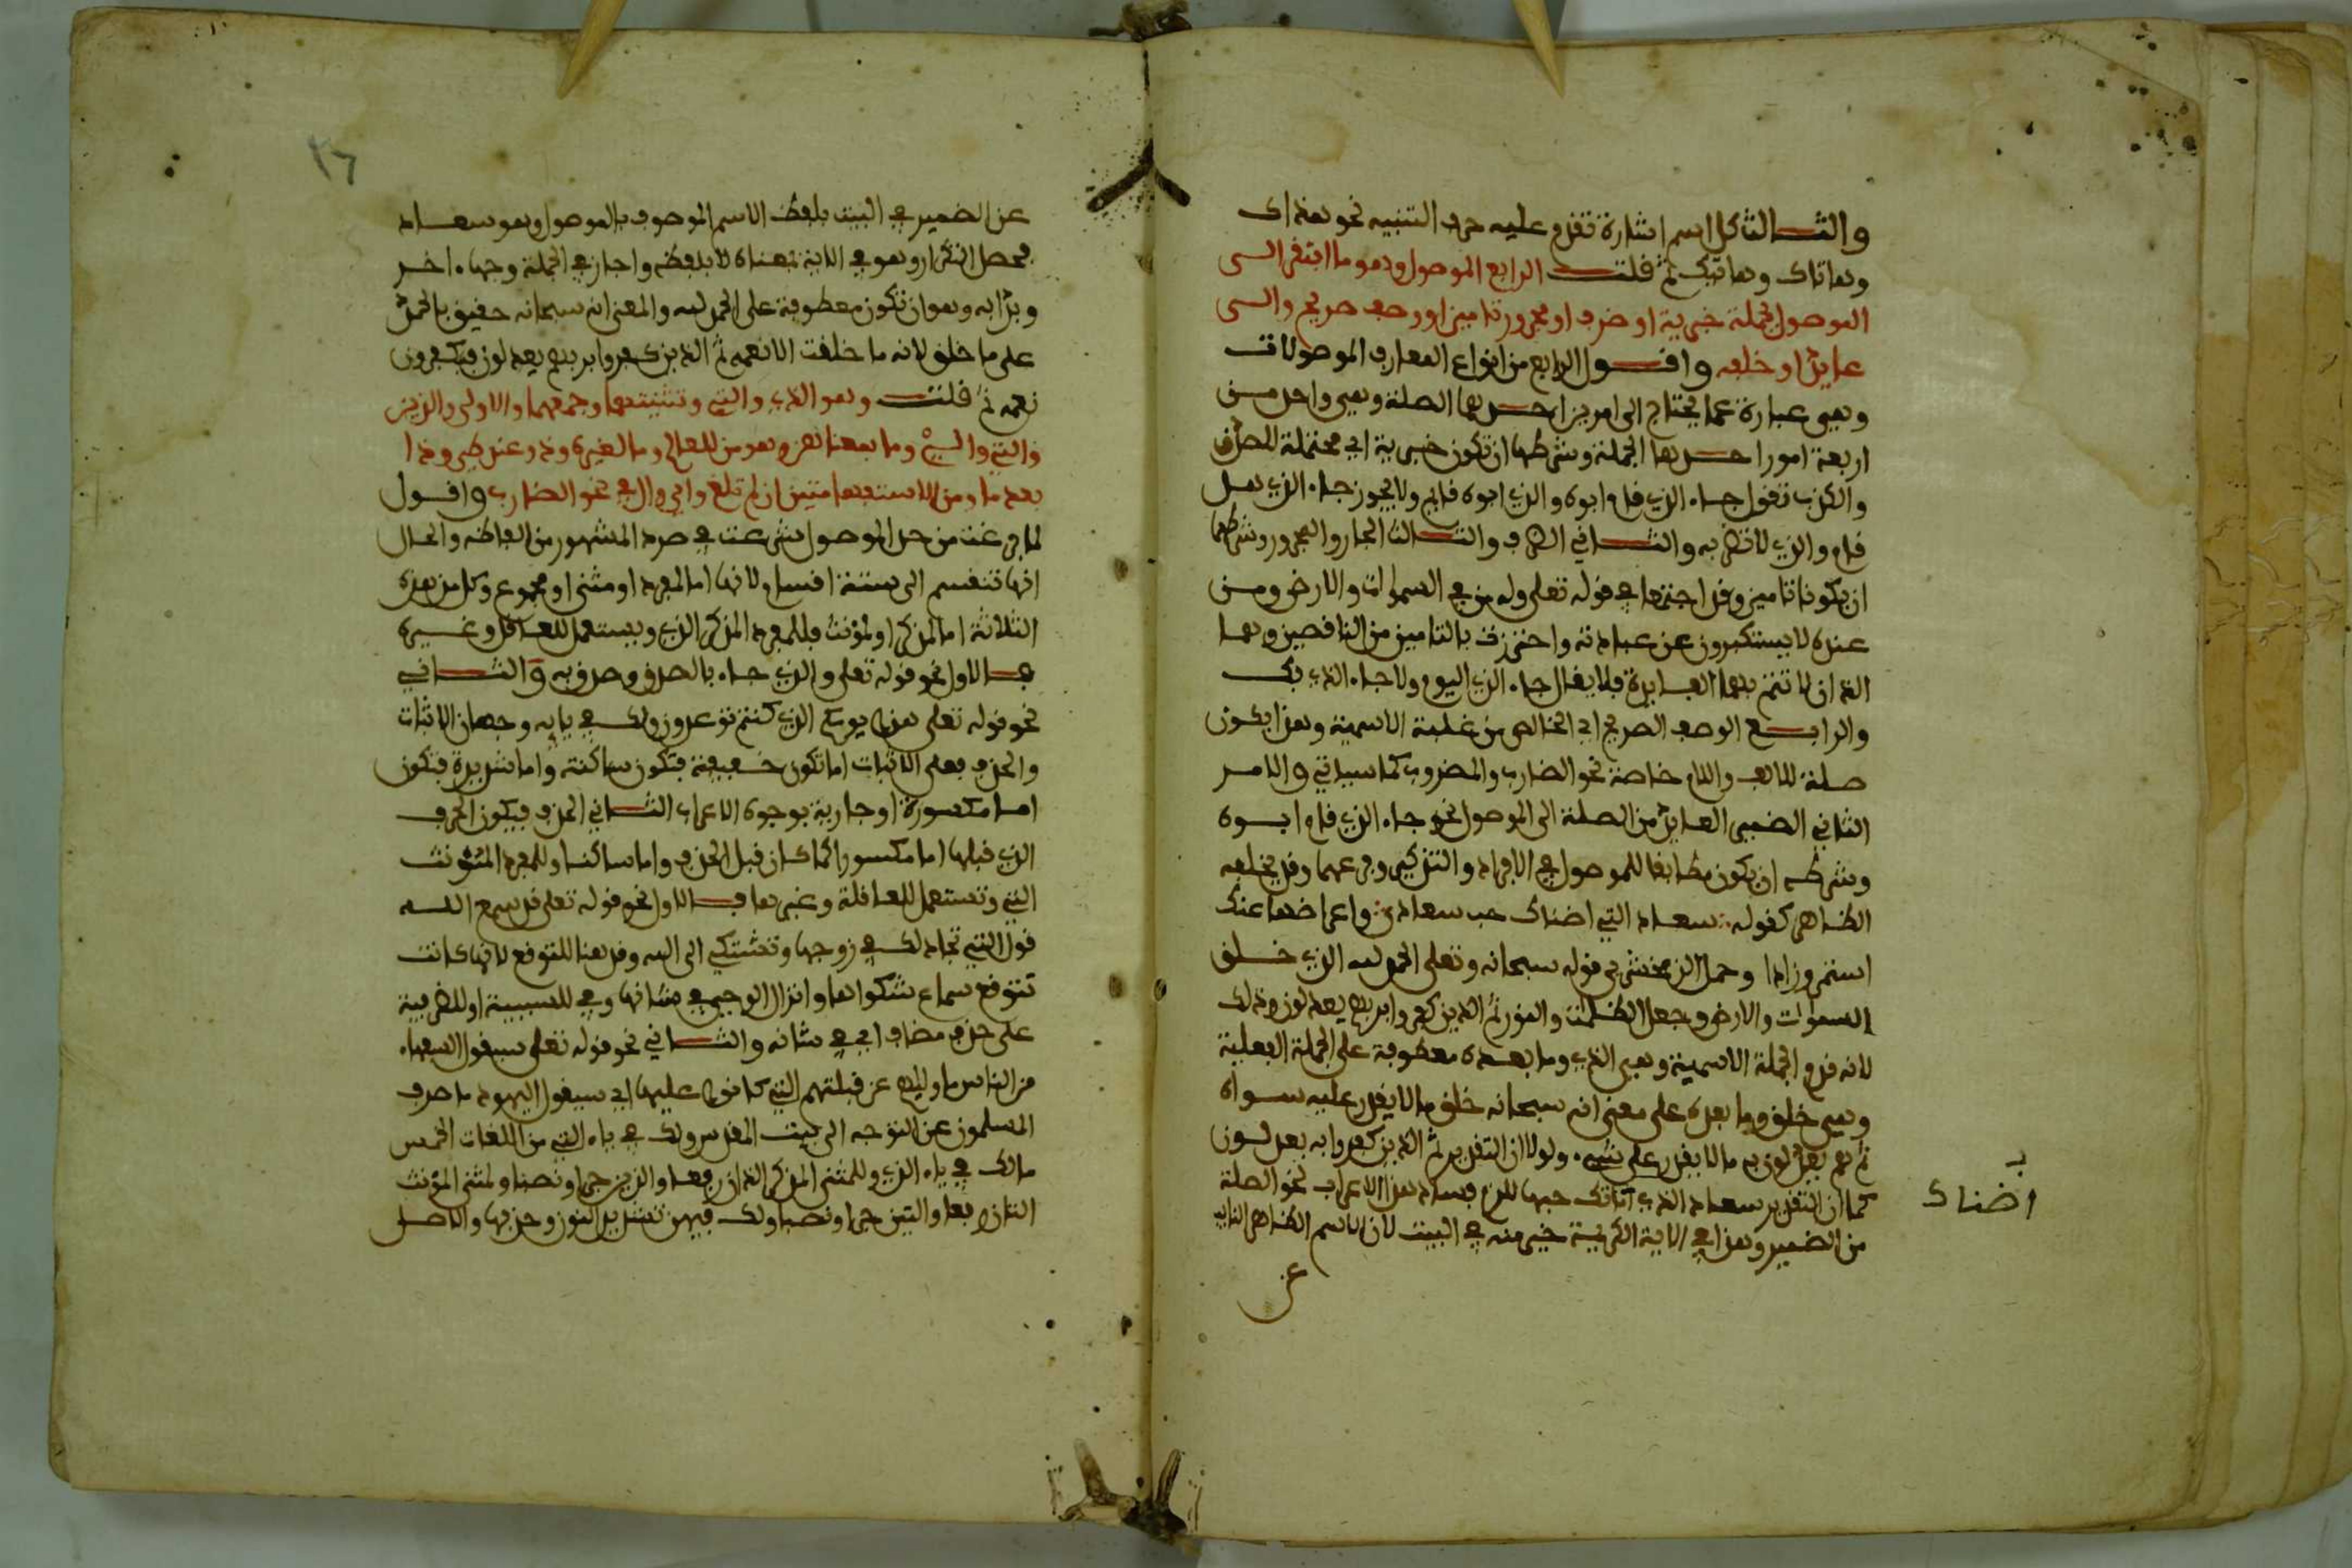 والثالث كل اسم اشارة تقدم عليه حرف التنبيه نحو هذاك
وهاتاك وهاتيك ثم قلت الرابع الموصول وهو ما افتقر الى
الموصول بجملة خبرية او ظرف او مجرور تامين او وصف صريح والى
عايد او خلفه واقول الرابع من انواع المعارف الموصولات
وهي عبارة عما يحتاج الى امرين احدهما الصلة وهي واحد من
اربعة امور احدها الجملة وشرطها ان تكون خبرية اي محتملة للصدق
والكذب تقول جاء الذي قام ابوه والذي ابوه قايم ولا يجوز جاء الذي هل
قام والذي لا تضربه والثاني الظرف والثالث الجار والمجرور وشرطهما
ان يكونا تامين وقد اجتمعا في قوله تعلى وله من في السموات والارض ومن
عنده لا يستكبرون عن عبادته واحترزت بالتامين من الناقصين وهما
اللذان لا تتم بهما الفايدة فلا يقال جاء الذي اليوم ولا جاء الذي بك
والرابع الوصف الصريح اي الخالص من غلبة الاسمية وهذا يكون
صلة للالف واللام خاصة نحو الضارب والمضروب كما سياتي والامر
الثاني الضمير العايد من الصلة الى الموصول نحو جاء الذي قام ابوه
وشرطه ان يكون مطابقا للموصول في الافراد والتذكير وفرعهما وقد يخلفه
الظاهر كقوله سعاد التي اضناك حب سعادا واعراضها عنك
استمر وزادا وحمل الزمخشري قوله سبحانه وتعلى الحمد لله الذي خلق
السموات والارض وجعل الظلمت والنور ثم الذين كفروا بربهم يعدلون وذلك
لانه قدر الجملة الاسمية وهي الذي وما بعده معطوفة على الجملة الفعلية
وهي خلق وما بعده على معنى انه سبحانه خلق ما لا يقدر عليه سواه
ثم هم يعدلون به ما لا يقدر على شيء ولولا ان التقدير ثم الذين كفروا به يعدلون
كما ان التقدير سعاد الذي اتاك حبها للزم فساد هذا الاعراب نحو الصلة
من الضمير وهذا في الاية الكريمة خير منه في البيت لان الاسم الظاهر النايب
عن
اضناك
٢٦
عن الضمير في البيت بلفظ الاسم الموصوف بالموصول وهو سعاد
فحصل التكرار وهو في الاية بمعناه لا بلفظه واجاز في الجملة وجها اخر
وبدا به وهو ان تكون معطوفة على الحمد لله والمعنى انه سبحانه حقيق بالحمد
على ما خلق لانه ما خلقت الا نعمه ثم الذين كفروا بربهم يعدلون فيكفرون
نعمه ثم قلت وهو الذي والتي وتثنيتهما وجمعهما والاولى والذين
والتي والـ وما بمعناهن وهو من للعالم وما لغيره وذو عند طي وذا
بعد ما ومن الاستفهاميتين ان لم تلغ واي وال في نحو الضارب واقول
لما فرغت من حد الموصول شرعت في سرد المشهور من الفاظه والحال
انها تنقسم الى ستة اقسام لانها اما لمفرد او مثنى او مجموع وكل من هذه
الثلاثة اما لمذكر او لمؤنث فللمفرد المذكر الذي ويستعمل للعاقل وغيره
فالاول نحو قوله تعلى والذي جاء بالصدق وصدق به والثاني
نحو قوله تعلى هذا يومكم الذي كنتم توعدون ولك في يايه وجهان الاثبات
والحذف فعلى الاثبات اما تكون خفيفة فتكون ساكنة واما شديدة فتكون
اما مكسورة او جارية بوجوه الاعراب الثاني الحذف فيكون الحرف
الذي قبلها اما مكسورا كما كان قبل الحذف واما ساكنا وللمفرد المؤنث
التي وتستعمل للعاقلة وغيرها فالاول نحو قوله تعلى قد سمع الله
قول التي تجادلك في زوجها وتشتكي الى الله وقد هنا للتوقع لانها كانت
تتوقع سماع شكواها وانزال الوحي في شانها وفي للسببية او للظرفية
على حذف مضاف اي في شانه والثاني نحو قوله تعلى سيقول السفهاء
من الناس ما وليهم عن قبلتهم التي كانوا عليها اي سيقول اليهود ما صرف
المسلمون عن التوجه الى بيت المقدس ولك في ياء التي من اللغات الخمس
مالك في ياء الذي وللمثنى المذكر اللذان رفعا والذين جرا ونصبا ولمثنى المؤنث
اللتان رفعا واللتين جرا ونصبا ولك فيهن تشديد النون وحذفها والاصل